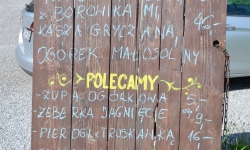 Z BOROWIKAMI 46,-
KASZA GRYCZANA
OGÓREK MAŁOSOLNY
POLECAMY
- ZUPA OGÓRKOWA 5,-
- ŻEBERKA JAGNIĘCE 9,-
- PIEROGI Z TRUSKAWKĄ 16,-